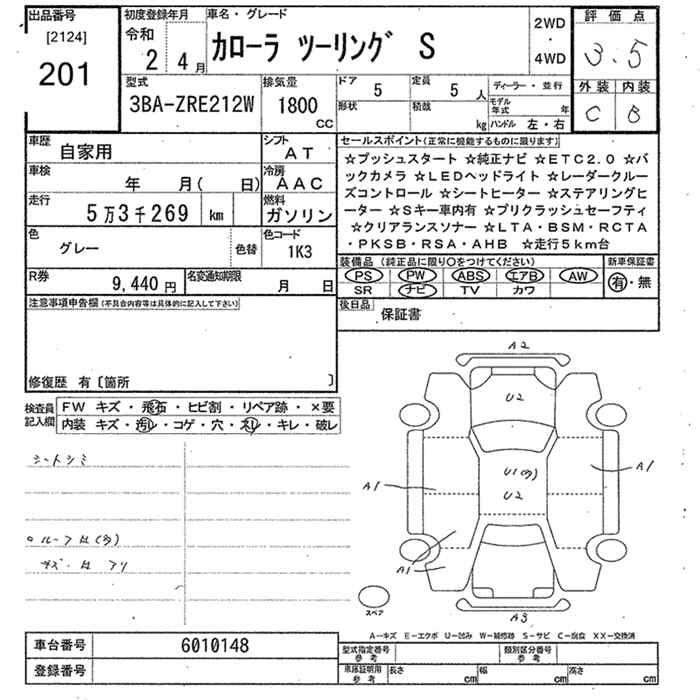 出品番号
[2124]
201
初度登録年月
令和
2 4月
車名・グレード
カローラ ツーリング S
2WD
・
4WD
評価点
3.5
外装 内装
C B
型式
3BA-ZRE212W
排気量
1800
cc
ドア
5
定員
5 人
形状
積載
kg
ディーラー・並行
モデル年式 年
ハンドル 左・右
車歴
自家用
シフト
AT
車検
年 月( 日)
冷房
AAC
走行
5万3千269 km
燃料
ガソリン
色
グレー
色替
色コード
1K3
R券
9,440円
名変通知期限
月 日
セールスポイント(正常に機能するものに限ります)
☆プッシュスタート ☆純正ナビ ☆ETC2.0 ☆バ
ックカメラ ☆LEDヘッドライト ☆レーダークルー
ズコントロール ☆シートヒーター ☆ステアリングヒ
ーター ☆Sキー車内有 ☆プリクラッシュセーフティ
☆クリアランスソナー ☆LTA・BSM・RCTA
・PKSB・RSA・AHB ☆走行5km台
装備品 (純正品に限り○をつけてください)
PS PW ABS エアB AW
SR ナビ TV カワ
新車保証書
有・無
後日品
保証書
注意事項申告欄(不具合内容等は具体的に記入して下さい)
修復歴 有〔箇所 〕
検査員
記入欄
FW キズ・飛石・ヒビ割・リペア跡・×要
内装 キズ・汚レ・コゲ・穴・スレ・キレ・破レ
シートシミ
ルーフ凹(多)
キズ・凹 アリ
A2
U2
U1(多)
U2
A1
A1
A1
A3
スペア
A-キズ E-エクボ U-凹み W-補修跡 S-サビ C-腐食 XX-交換済
車台番号
6010148
登録番号
型式指定番号
参考
類別区分番号
参考
車庫証明用
参考
長さ cm
幅 cm
高さ cm